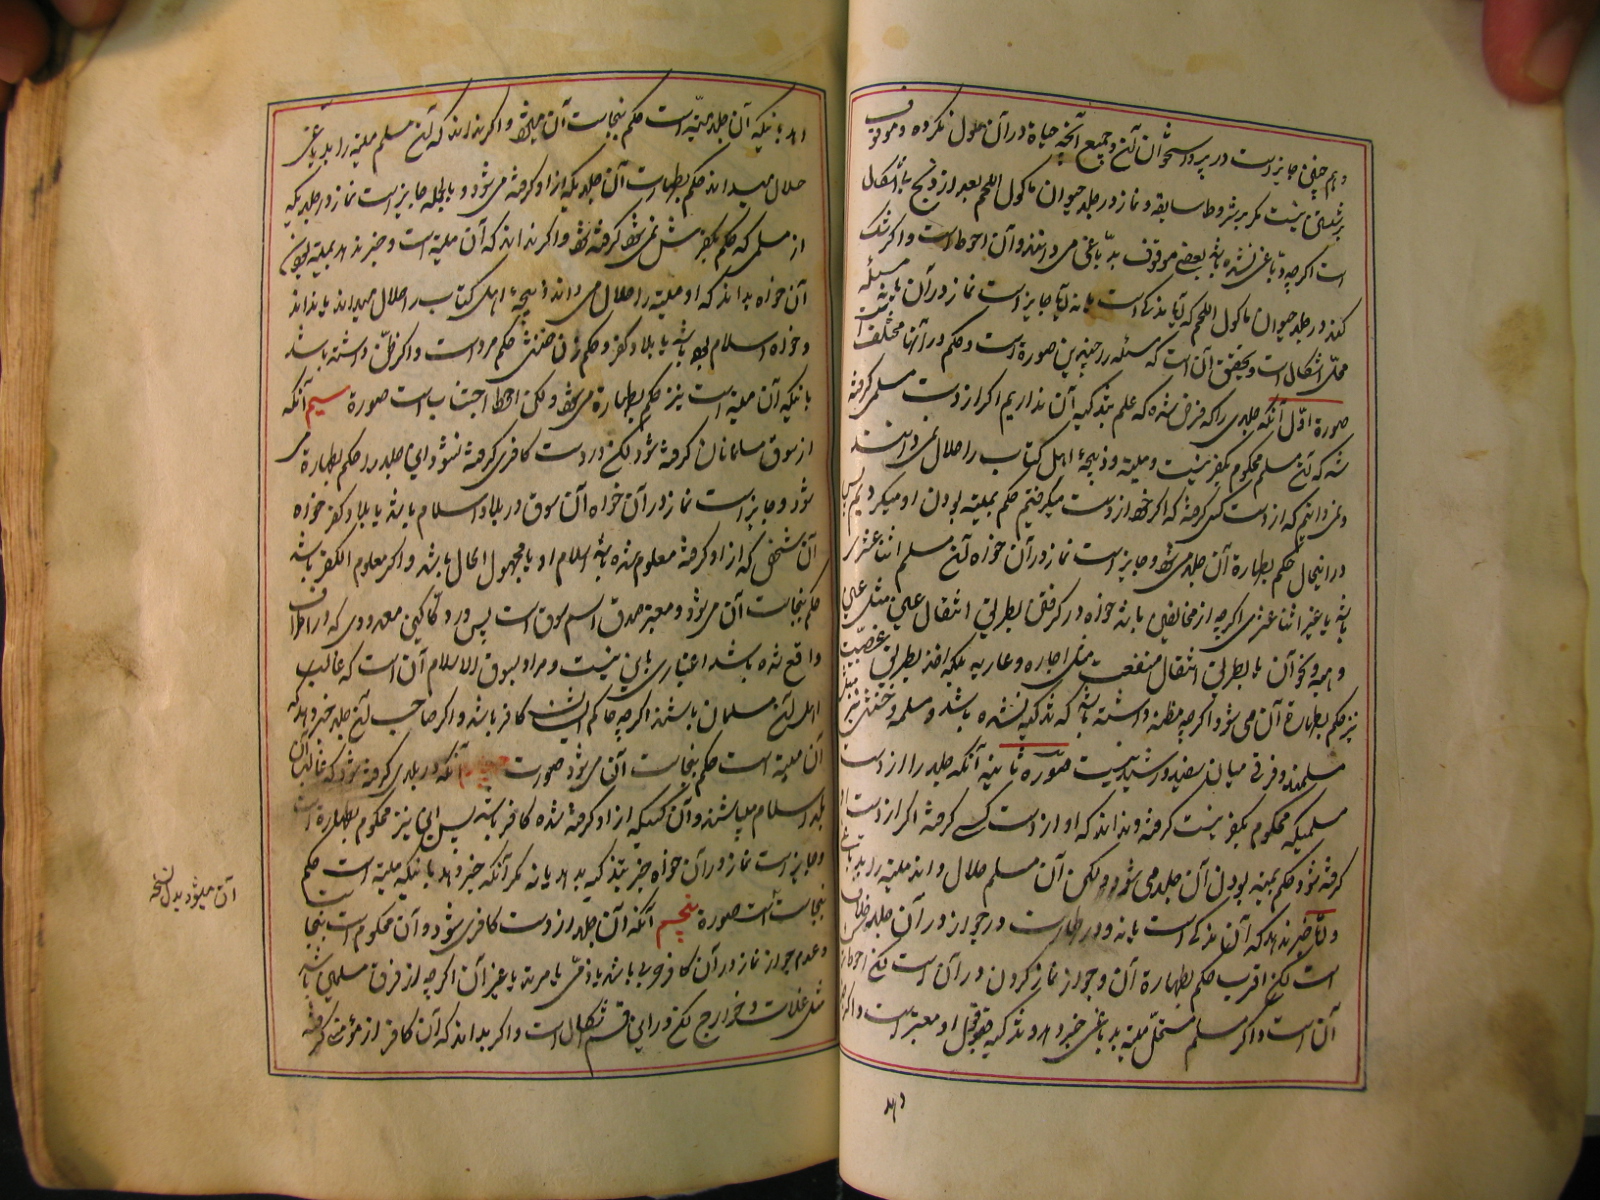 و هم چنین جایز است در پر و استخوان آن و جمیع آنچه حیاة در آن حلول نکرده و موقوف
نیست مگر بر شروط سابقه و نماز در جلد حیوان ماکول اللحم بعد از ذبح بی اشکال
است اگر چه دباغی نشده باشد بعضی موقوف بدباغی می دانند و آن احوط است و اگر شک
کند در جلد حیوان ماکول اللحم که آیا مذکی است یا نه آیا جایز است نماز در آن یا نه مسئله
محل اشکال است و تحقیق آن است که مسئله را چندین صورة است و حکم در آنها مختلف است
صورة اول آنکه جلدی را که فرض شده که علم بتذکیه آن نداریم اگر از دست مسلمی گرفته
شد که آن مسلم محکوم بکفر نیست و میته و ذبیحه اهل کتاب را حلال نمی داند
و نمی دانیم که از دست کسی گرفته که اگر خود از دست میگرفتیم حکم بمیته بودن او میکردیم پس
در اینحال حکم بطهارة آن جلد می شود و جایز است نماز در آن خواه آن مسلم اثنا عشری
باشد یا غیر اثنا عشری اگر چه از مخالفین باشد خواه در گرفتن بطریق انتقال عین مثل بیع
و هبه و نحو آن یا بطریق انتقال منفعت مثل اجاره و عاریه بلکه اخذ بطریق غصبیت
نیز حکم بطهارة آن می شود اگر چه مظنه داشته باشد که تذکیه نشده باشد و مسلمه و خنثی نیز مثل
مسلمند و فرقی میان سفید و رشید نیست صورة ثانیه آنکه جلد را از دست
مسلمیکه محکوم بکفر نیست گرفته و نداند که او از دست کسی گرفته اگر از دست او
گرفته شود حکم بمیته بودن آن جلد می شود و لکن آن مسلم حلال داند میته را بدباغی
و ایضا خبر ندهد که آن مذکی است یا نه و در طهارت و در جواز در آن جلد خلاف
است لکن اقرب حکم بطهارة آن و جواز نماز کردن در آن است لکن احوط ترک
آن است و اگر مسلم مستحل میته بدباغی خبر دهد و تذکیه قول او معتبر است و اگر خبر
دهد
دهد بانیکه آن جلد میته است حکم بنجاست آن میشود و اگر نداند که آن مسلم میته را بدباغی
حلال میداند حکم بطهارت آن جلدیکه از او گرفته می شود و بالجمله جایز است نماز در جلدیکه
از مسلمی که حکم بکفرش نمی شود گرفته شود و اگر نداند که آن میته است و خبر ندهد بمیته بودن
آن خواه بداند که او میته را حلال می داند ذبیحه اهل کتاب را حلال میداند یا نداند
و خواه در اسلام بود باشد یا بلاد کفر و حکم زن و خنثی حکم مرد است و اگر ظن داشته باشد
بانیکه آن میته است نیز حکم بطهارة می شود و لکن احوط اجتناب است صورة سیم آنکه
از سوق مسلمانان گرفته شود لکن در دست کافری گرفته نشود این جلد را حکم بطهارة می
شود و جایز است نماز در آن خواه آن سوق در بلاد اسلام باشد یا بلاد کفر خواه
آن شخصی که از او گرفته معلوم شده باشد اسلام او یا مجهول الحال باشد و اگر معلوم الکفر باشد
حکم بنجاست آن می شود و معتبر صدق اسم سوق است پس در دکاکین معدودی که در اطراف
واقع شده باشد اعتباری باین نیست و مراد بسوق الاسلام آن است که غالب
اهل آن مسلمان باشند اگر چه حاکم ایشان کافر باشد و اگر صاحب آن جلد خبر دهد که
آن میته است حکم بنجاست آن می شود صورت چهارم آنکه در بلدی گرفته شود که غالب آن
بلد اسلام باشند و آن کسیکه از او گرفته شده کافر باشد پس این نیز محکوم بطهارة است
و جایز است نماز در آن خواه خبر بتذکیه بدهد یا نه مگر آنکه خبر دهد بانیکه میته است حکم
بنجاست است صورة پنجم آنکه آن جلد از دست کافری شود و آن محکوم است بنجاست
و عدم جواز نماز در آن کافر حربی باشد یا ذمی یا مرتد یا غیر آن اگر چه از فرق مسلمین باشد
مثل غلات و خوارج لکن در این قسم اشکال است و اگر بداند که آن کافر از مؤمنی گرفته
آن میشود بدل نسخه